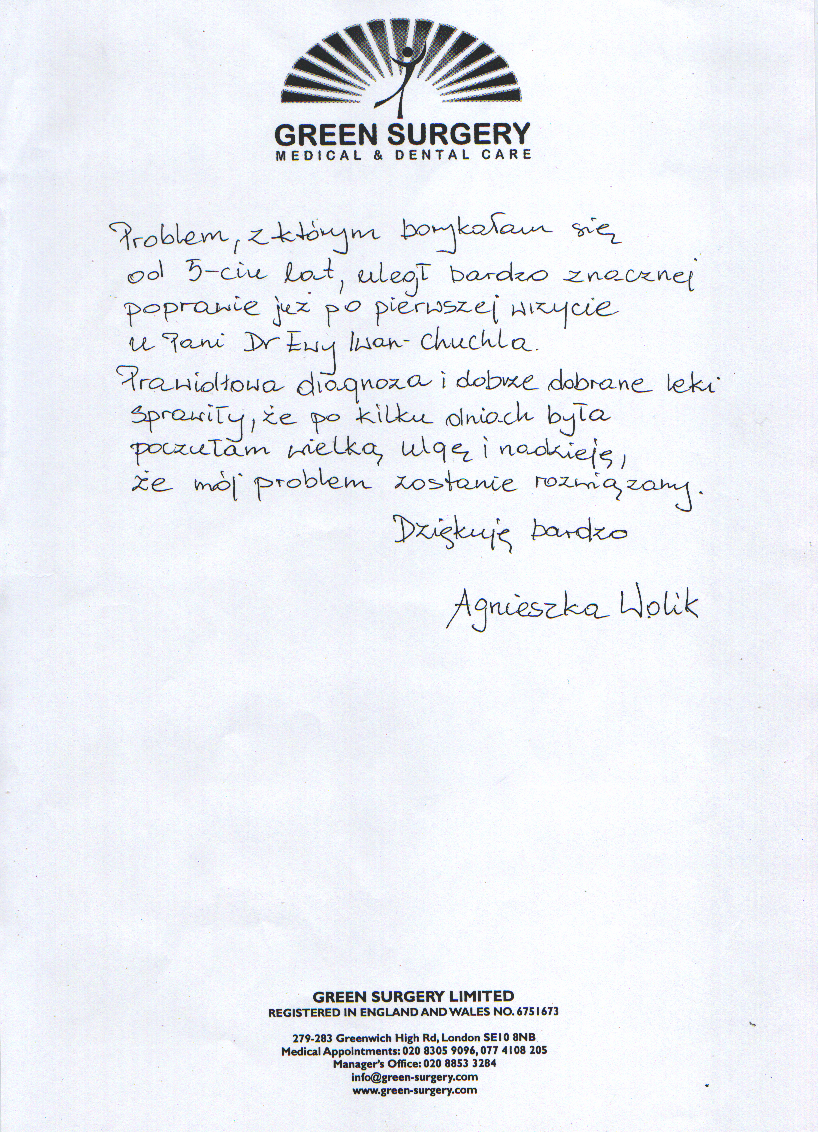 GREEN SURGERY
MEDICAL & DENTAL CARE
Problem, z którym borykałam się
od 5-ciu lat, uległ bardzo znacznej
poprawie już po pierwszej wizycie
u Pani Dr Ewy Iwan-Chuchla.
Prawidłowa diagnoza i dobrze dobrane leki
sprawiły, że po kilku dniach była
poczułam wielką ulgę i nadzieję,
że mój problem zostanie rozwiązany.
Dziękuję bardzo
Agnieszka Wolik
GREEN SURGERY LIMITED
REGISTERED IN ENGLAND AND WALES NO. 6751673
279-283 Greenwich High Rd, London SE10 8NB
Medical Appointments: 020 8305 9096, 077 4108 205
Manager's Office: 020 8853 3284
info@green-surgery.com
www.green-surgery.com